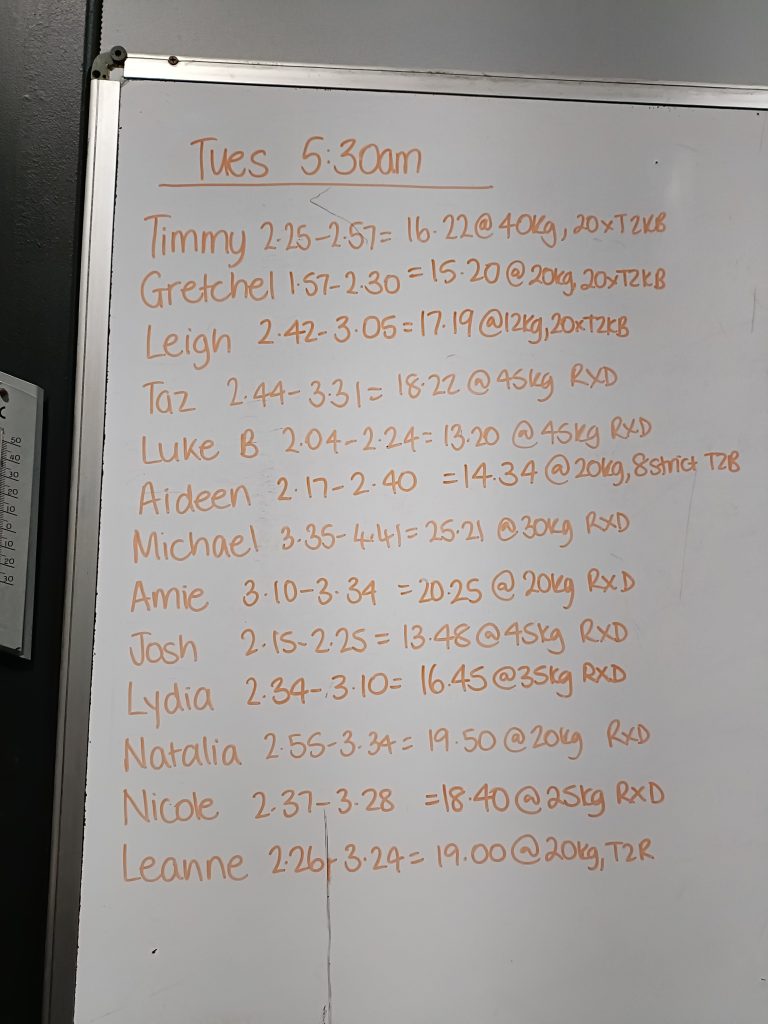 Tues 5:30am
Timmy 2.25-2.57= 16.22@40kg, 20xT2KB
Gretchel 1.57-2.30=15.20@20kg, 20xT2KB
Leigh 2.42-3.05=17.19@12kg, 20xT2KB
Taz 2.44-3.31= 18.22@45kg RXD
Luke B 2.04-2.24= 13.20 @45kg RXD
Aideen 2.17-2.40 =14.34@20kg, 8 strict T2B
Michael 3.35-4.41=25.21 @30kg RXD
Amie 3.10-3.34 =20.25@20kg RXD
Josh 2.15-2.25= 13.48@45kg RXD
Lydia 2.34-3.10= 16.45@35kg RXD
Natalia 2.55-3.34= 19.50@20kg RXD
Nicole 2.37-3.28 =18.40@25kg RXD
Leanne 2.26-3.24= 19.00@20kg, T2R
C
50
40
30
20
10
0
10
20
30